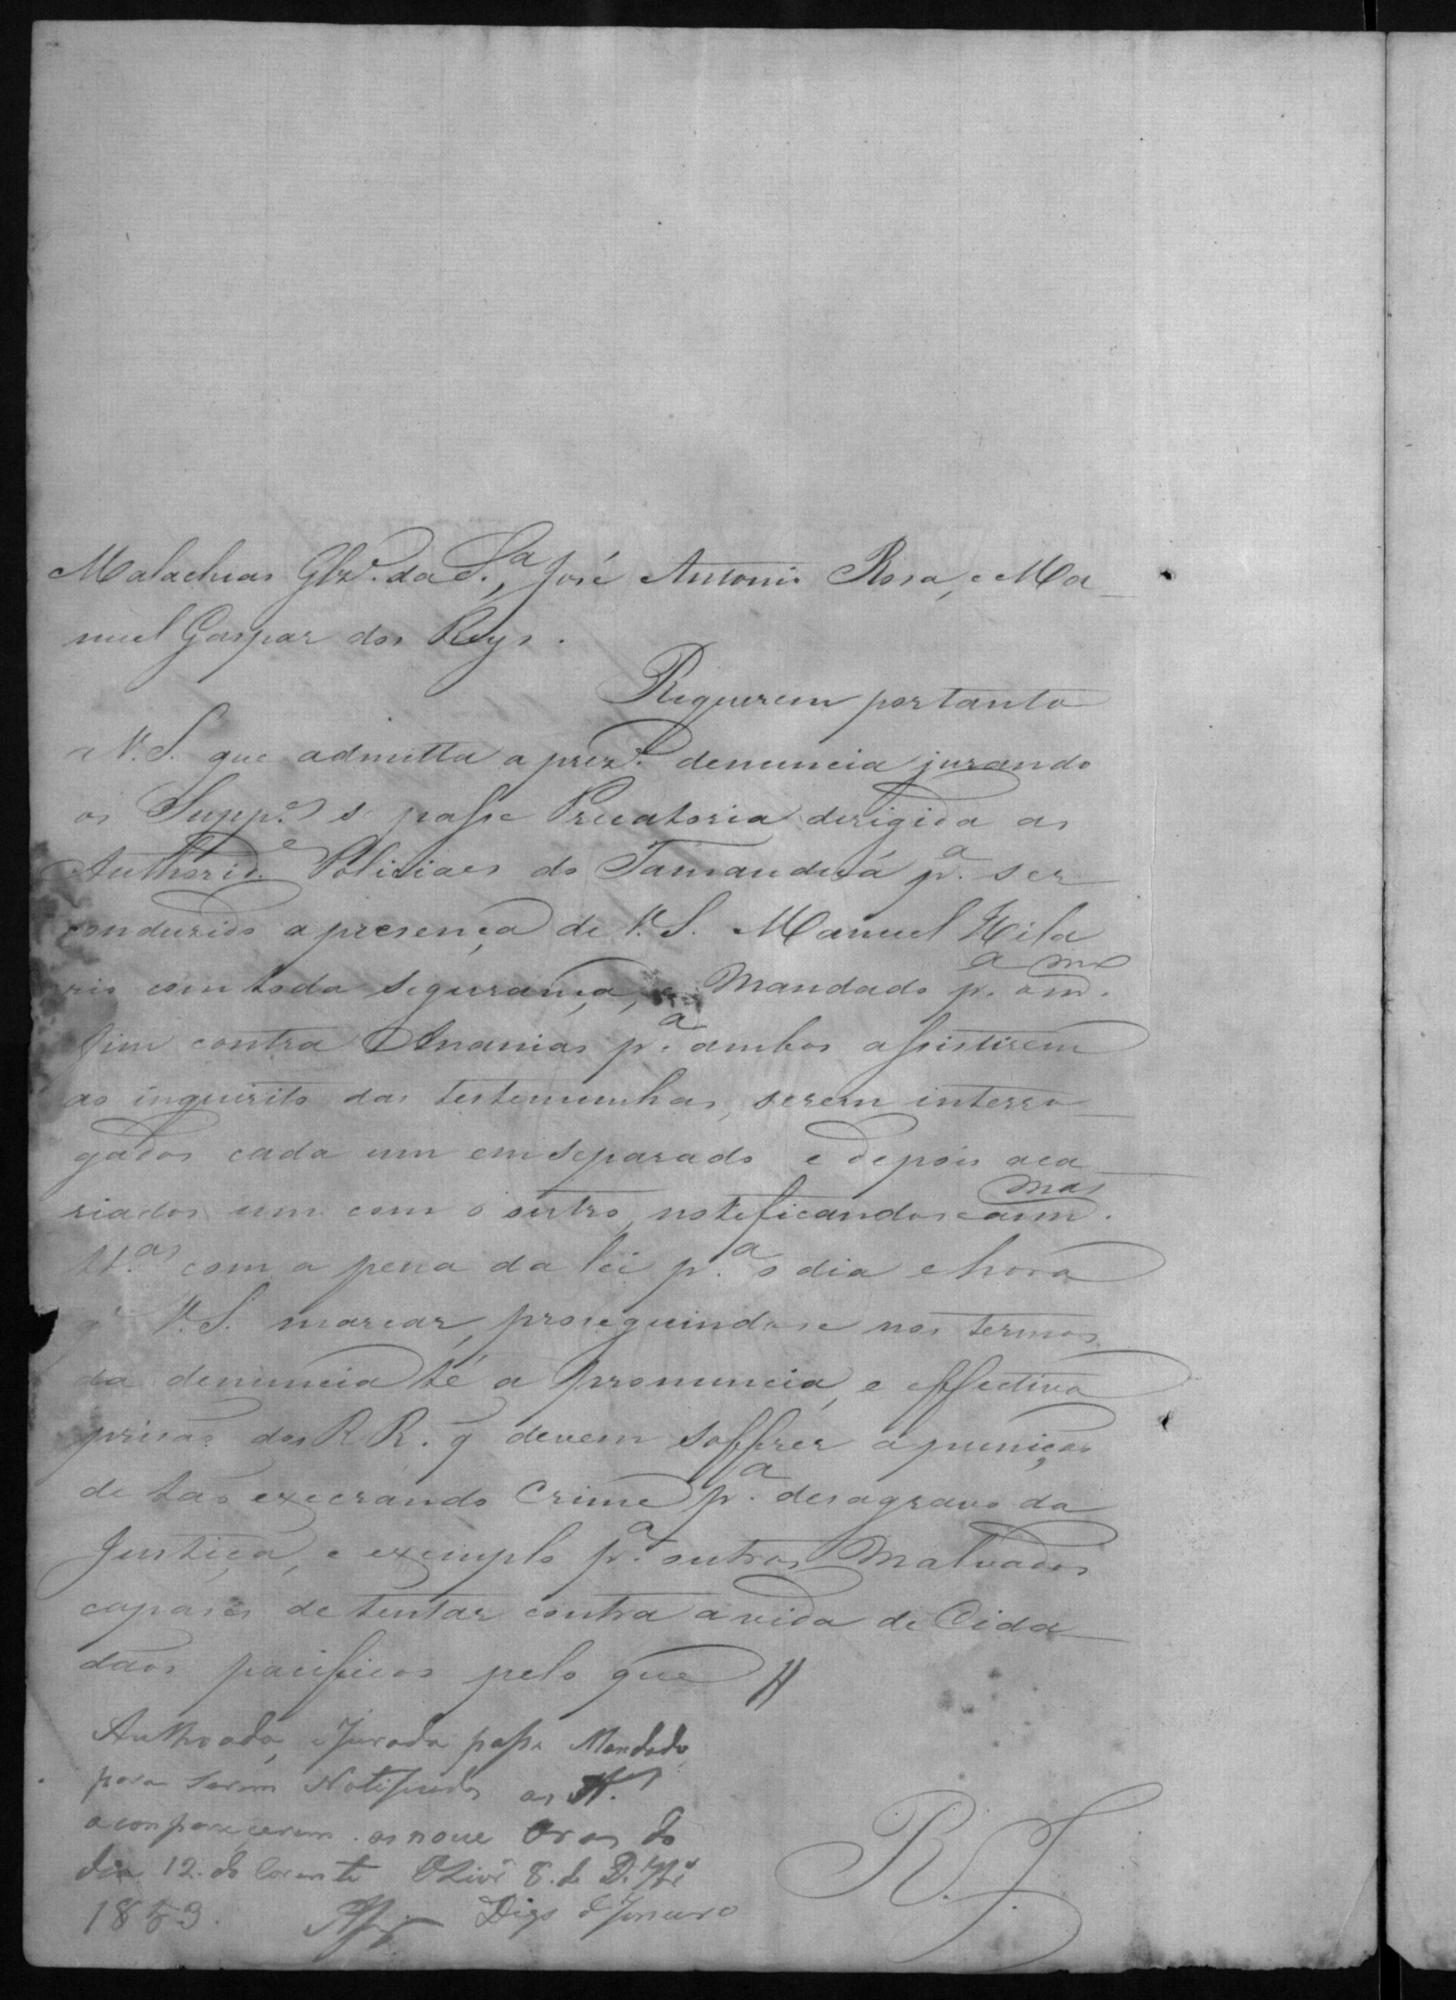 Malachias Glz.^e da S.^a, José Antonio Rosa, e Ma-
nuel Gaspar dos Reys.
Requerem portanto
a V. S. que admitta a prez.^e denuncia jurando
os Supp.^es se passe Precatoria dirigida as
Authorid.^es Policiaes do Tamanduá p.^a ser
conduzido a presença de V. S. Manuel Hila
rio com toda segurança, e Mandado p.^a o m.^mo
fim contra Ananias p.^a ambos assistirem
ao inquirito das testemunhas, serem interro-
gados cada um em separado e depois aca-
riados um com o outro, notificandose as m.^mas
tt.^as com a pena da lei p.^a o dia e hora
q' V. S. marcar, proseguindose nos termos
da denuncia té a pronuncia, e effectiva
prisão dos R R. q̃ devem soffrer a punição
de tão execrando Crime p.^a desagravo da
Justiça, e exemplo p.^a outros Malvados
capases de tentar contra a vida de Cida-
dãos pacificos pelo que
Authoada, e Jurada passe Mandado
para serem Notificados as tt.^as
a comparecerem as nove Oras do
dia 12. do Corente Olivr.^a 8. de D.
1853.
R. J.